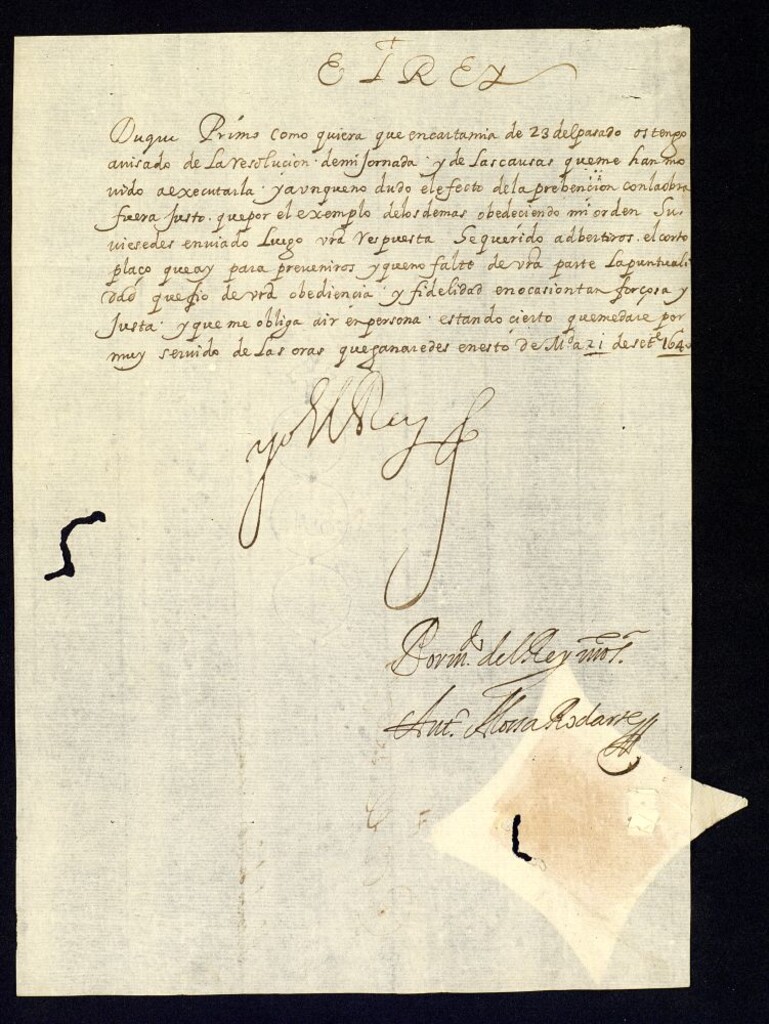 El REY
Duque Primo como quiera que en carta mia de 23 del pasado os tengo
auisado de La resolucion de mi Jornada y de Las causas que me han mo
uido a executarla y aunque no dudo el efeto de la prebencion con la obra
fuera Justo que por el exemplo de los demas obedeciendo mi orden hu
uiesedes enviado Luego vra respuesta He querido adbertiros el corto
plaço que ay para preueniros y que no falte de vra parte La puntuali
dad que fio de vra obediençia y fidelidad en ocasion tan forçosa y
Justa y que me obliga a ir en persona estando çierto que me dare por
muy seruido de Las oras que ganaredes en esto de Md a 21 de sete 164
yo el Rey
Por md del Rey nro sr
Anto Alossa Rodarte